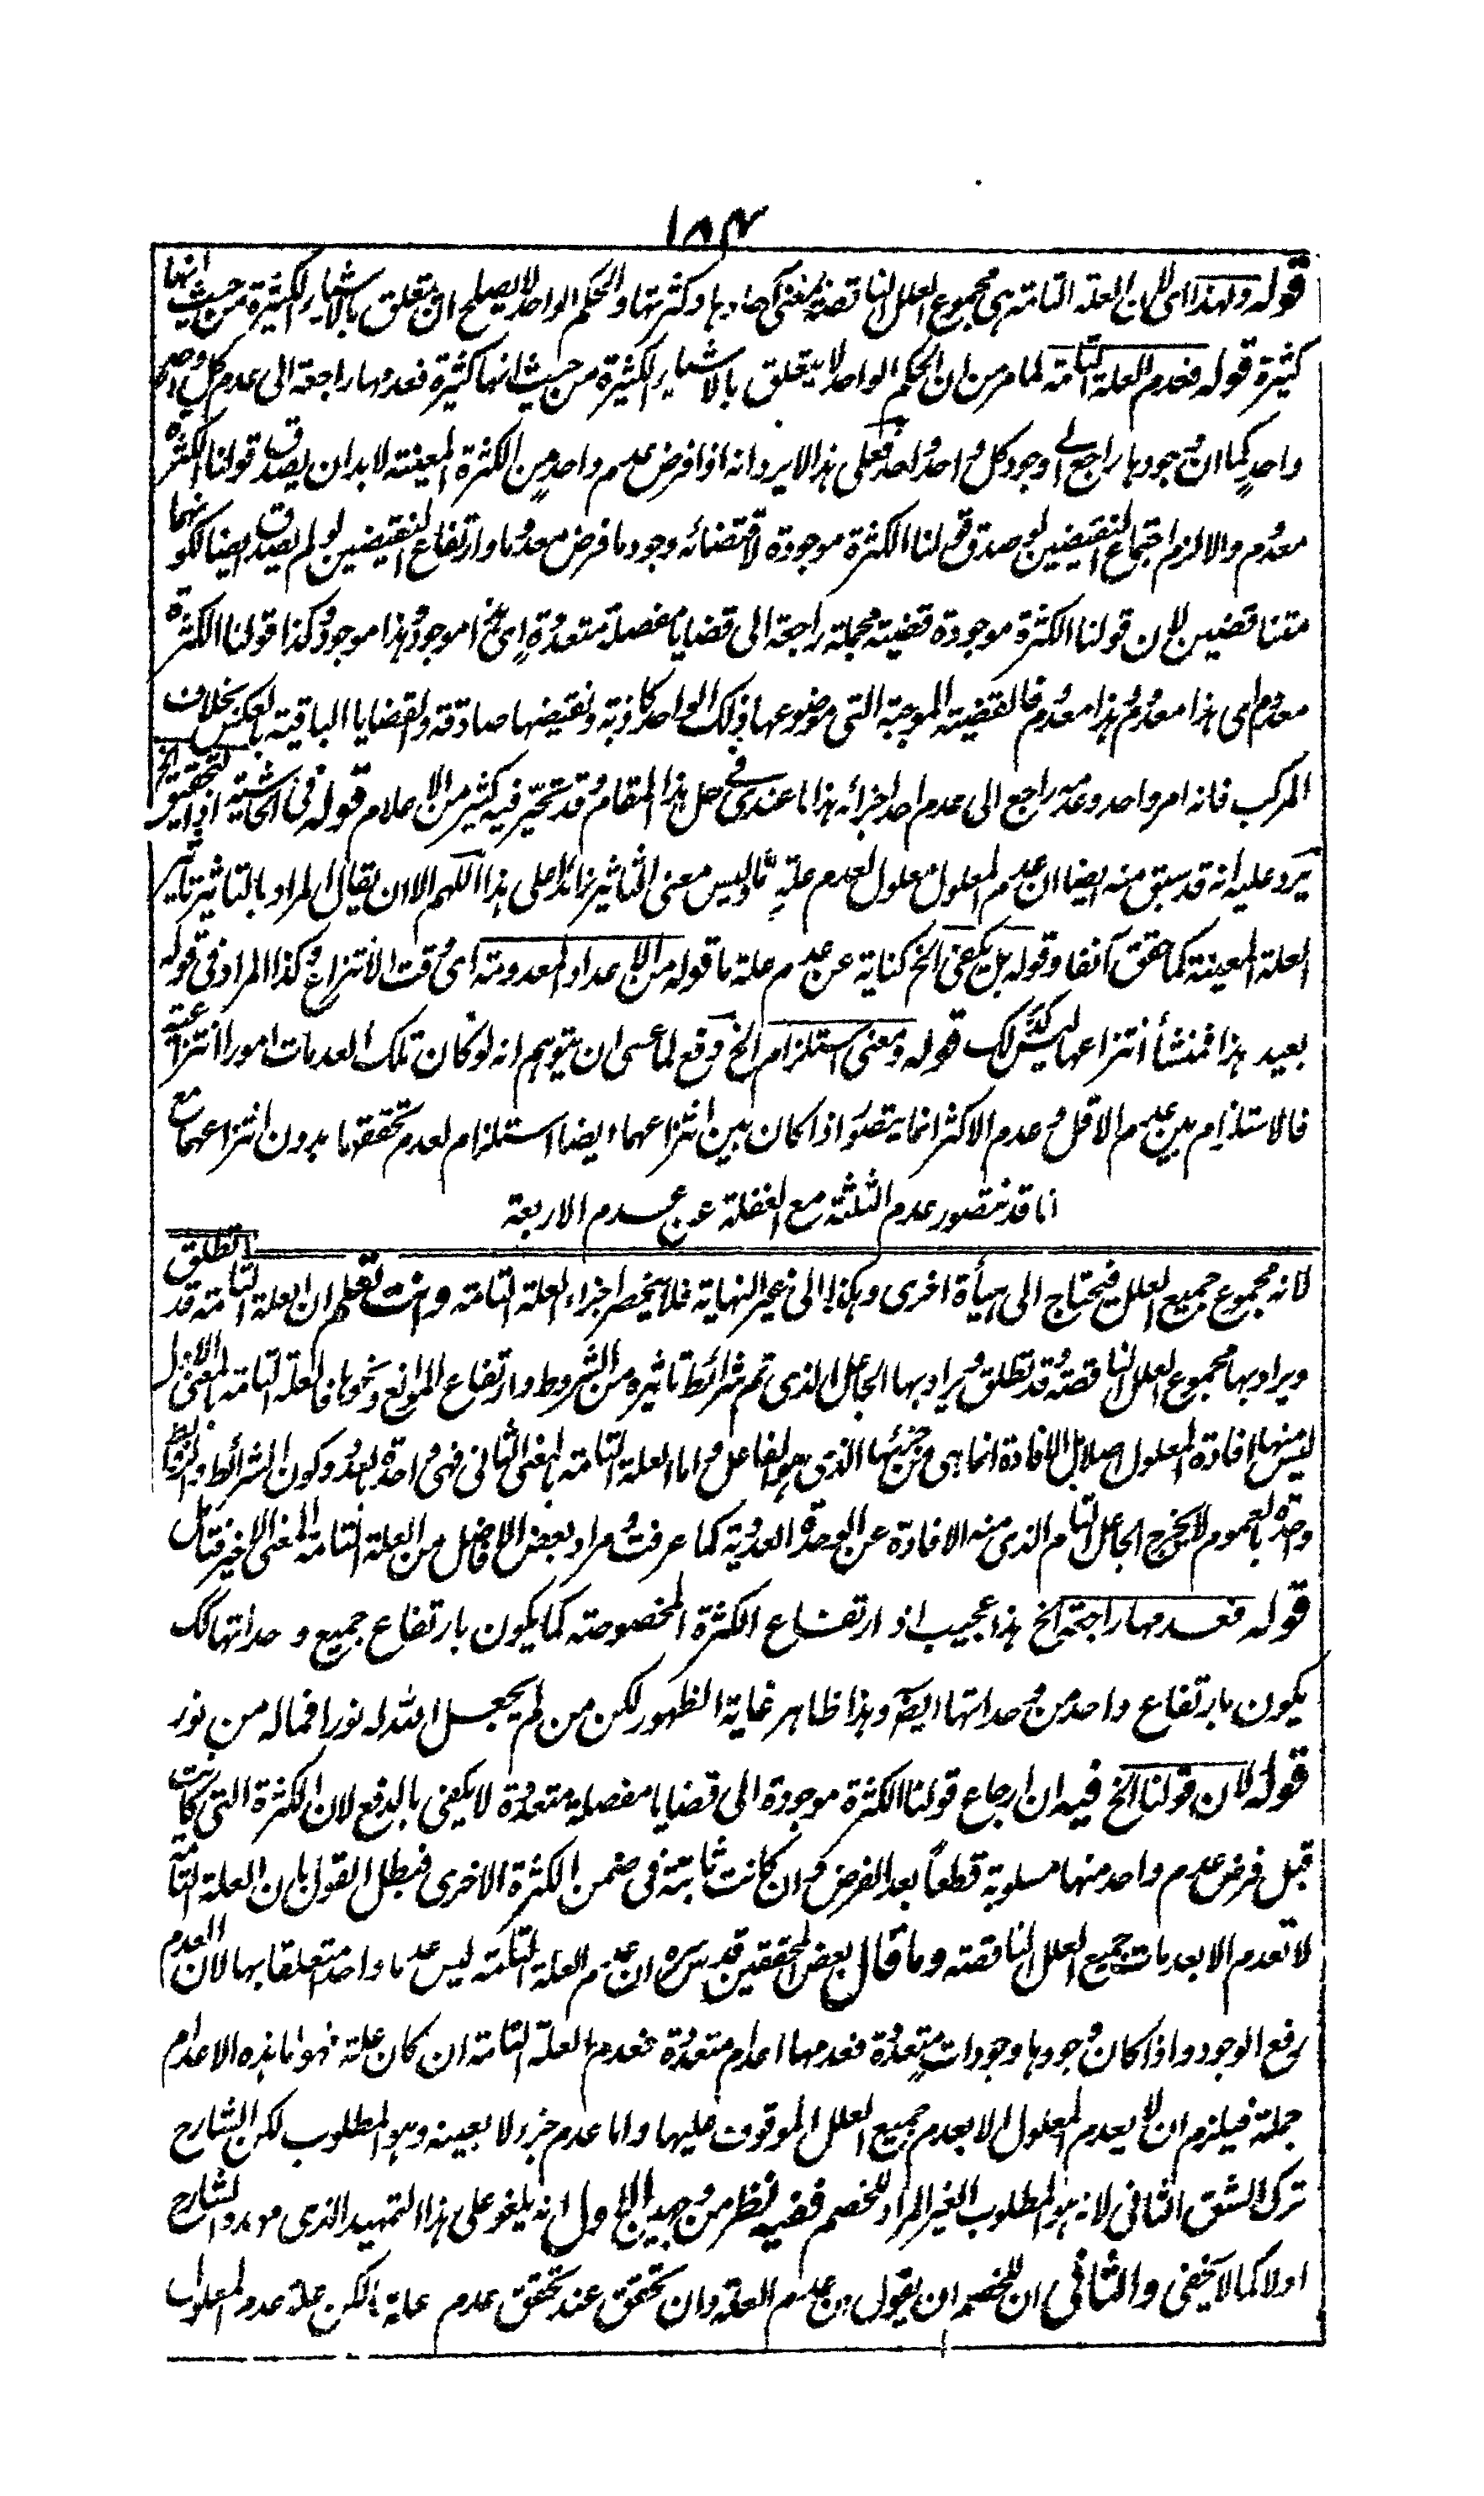 ١٨٤
قوله ولهذا اى لان العلة التامة هى مجموع العلل الناقصة بمعنى آحادها وكثرتها والحكم الواحد لا يصلح ان يتعلق بالاشياء الكثيرة من حيث انها
كثيرة قوله فعدم العلة التامة لما مر من ان الحكم الواحد لا يتعلق بالاشياء الكثيرة من حيث انها كثيرة فعدمها راجعة الى عدم كل واحد
واحد كما ان وجودها راجع الى وجود كل واحد واحد فعلى هذا لا يرد انه اذا فرض عدم واحد من الكثرة المعينة لابد ان يصدق قولنا الكثرة
معدوم والا لزم اجتماع النقيضين لو صدق قولنا الكثرة موجودة لاقتضائه وجود ما فرض معدوما وارتفاع النقيضين لو لم يصدق ايضا لكونهما
متناقضين لان قولنا الكثرة موجودة قضية مجملة راجعة الى قضايا مفصلة متعددة اى هذا موجود وهذا موجود وكذا قولنا الكثرة
معدوم اى هذا معدوم وهذا معدوم فالقضية الموجبة التى موضوعها ذلك الواحد كاذبة ونقيضها صادقة والقضايا الباقية بالعكس بخلاف
المركب فانه امر واحد وعدمه راجع الى عدم احد اجزائه هذا ما عندى فى حل هذا المقام وقد تحير فيه كثير من الاعلام قوله فى الحاشية اذ التحقيق الخ
يرد عليه انه قد سبق منه ايضا ان عدم المعلول معلول لعدم علة ما وليس معنى التاثير زائدا على هذا اللهم الا ان يقال المراد بالتاثير تاثير
العلة المعينة كما حقق آنفا وقوله بل يكفى الخ كناية عن عدم علة ما قوله من الاعداد المعدومة اى وقت الانتزاع وكذا المراد فى قوله
بعيد هذا فمنشأ انتزاعها ليس كذلك قوله ومعنى استلزام الخ دفع لما عسى ان يتوهم انه لو كان تلك العدمات امورا انتزاعية
فالاستلزام بين عدم الاقل وعدم الاكثر انما يتصور اذا كان بين انتزاعهما ايضا استلزام لعدم تحققهما بدون انتزاعهما مع
انا قد نتصور عدم الثلثة مع الغفلة عن عدم الاربعة
لانه مجموع جميع العلل فيحتاج الى هيأة اخرى وهكذا الى غير النهاية فلا ينحصر اجزاء العلة التامة وانت تعلم ان العلة التامة قد تطلق
ويراد بها مجموع العلل الناقصة وقد تطلق ويراد بها الجاعل الذى تم شرائط تاثيره من الشروط وارتفاع الموانع ونحوها فالعلة التامة بالمعنى الاول
ليس منها افادة المعلول اصلا بل الافادة انما هى من جزئها الذى هو الفاعل واما العلة التامة بالمعنى الثانى فهى واحدة بالعدد وكون الشرائط
وحدة بالعموم لا يخرج الجاعل التام الذى منه الافادة عن الوحدة العددية كما عرفت ومراد بعض الافاضل من العلة التامة المعنى الاخير فتامل
قوله فعدمها راجعة الخ هذا عجيب اذ ارتفاع الكثرة المخصوصة كما يكون بارتفاع جميع وحداتها كذلك
يكون بارتفاع واحد من وحداتها ايضا وهذا ظاهر غاية الظهور لكن من لم يجعل الله له نورا فما له من نور
قوله لان قولنا الخ فيه ان ارجاع قولنا الكثرة موجودة الى قضايا مفصلة متعددة لا يكفى بالدفع لان الكثرة التى كانت
قبل فرض عدم واحد منها مسلوبة قطعا بعد الفرض وان كانت ثابتة فى ضمن الكثرة الاخرى فبطل القول بان العلة التامة
لا تعدم الا بعدمات جميع العلل الناقصة وما قال بعض المحققين قدس سره ان عدم العلة التامة ليس عدما واحدا متعلقا بها لان العدم
رفع الوجود واذا كان وجودها وجودات متعددة فعدمها اعدام متعددة فعدم العلة التامة ان كان علة فهو اما هذه الاعدام
جملة فيلزم ان لا يعدم المعلول الا بعدم جميع العلل الموقوف عليها واما عدم جزء لا بعينه وهو المطلوب لكن الشارح
ترك الشق الثانى لانه هو المطلوب الغير المراد للخصم ففيه نظر من وجهين الاول انه يلغو على هذا التمهيد الذى مهده الشارح
اولا كما لا يخفى والثانى ان للخصم ان يقول ان عدم العلة وان تحقق عند تحقق عدم علة ما لكن علة عدم المعلول